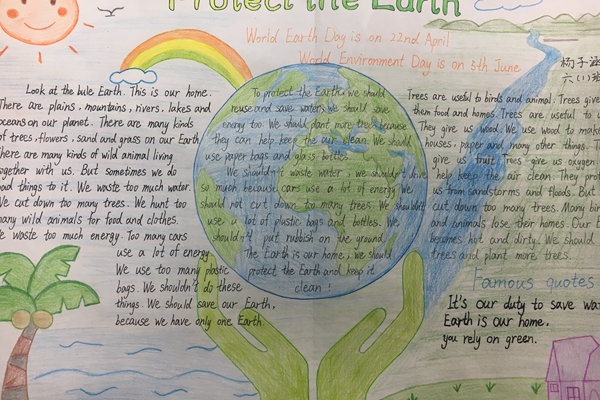 Protect the Earth
World Earth Day is on 22nd April
World Environment Day is on 5th June
杨子涵
六(1)班
Look at the bule Earth. This is our home.
There are plains, mountains, rivers, lakes and
oceans on our planet. There are many kinds
of trees, flowers, sand and grass on our Earth
There are many kinds of wild animal living
together with us. But sometimes we do
bad things to it. We waste too much water.
We cut down too many trees. We hunt too
many wild animals for food and clothes.
We waste too much energy. Too many cars
use a lot of energy.
We use too many plastic
bags. We shouldn't do these
things. We should save our Earth,
because we have only one Earth.
To protect the Earth, we should
reuse and save water. We should save
energy too. We should plant more trees because
they can help keep the air clean. We should
use paper bags and glass bottles.
We shouldn't waste water, we shouldn't drive
so much because cars use a lot of energy. We
should not cut down too many trees. We shouldn't
use a lot of plastic bags and bottles. We
shouldn't put rubbish on the ground.
The Earth is our home, we should
protect the Earth and keep it
clean!
Trees are useful to birds and animal. Trees give
them food and homes. Trees are useful to
They give us wood. We use wood to make
houses, paper and many other things. T
give us fruit. Trees give us oxygen.
help keep the air clean. They prote
us from sandstorms and floods. But
cut down too many trees. Many bir
and animals lose their homes. Our E
becomes hot and dirty. We should
trees and plant more trees.
Famous quotes
It's our duty to save wa
Earth is our home,
you rely on green.